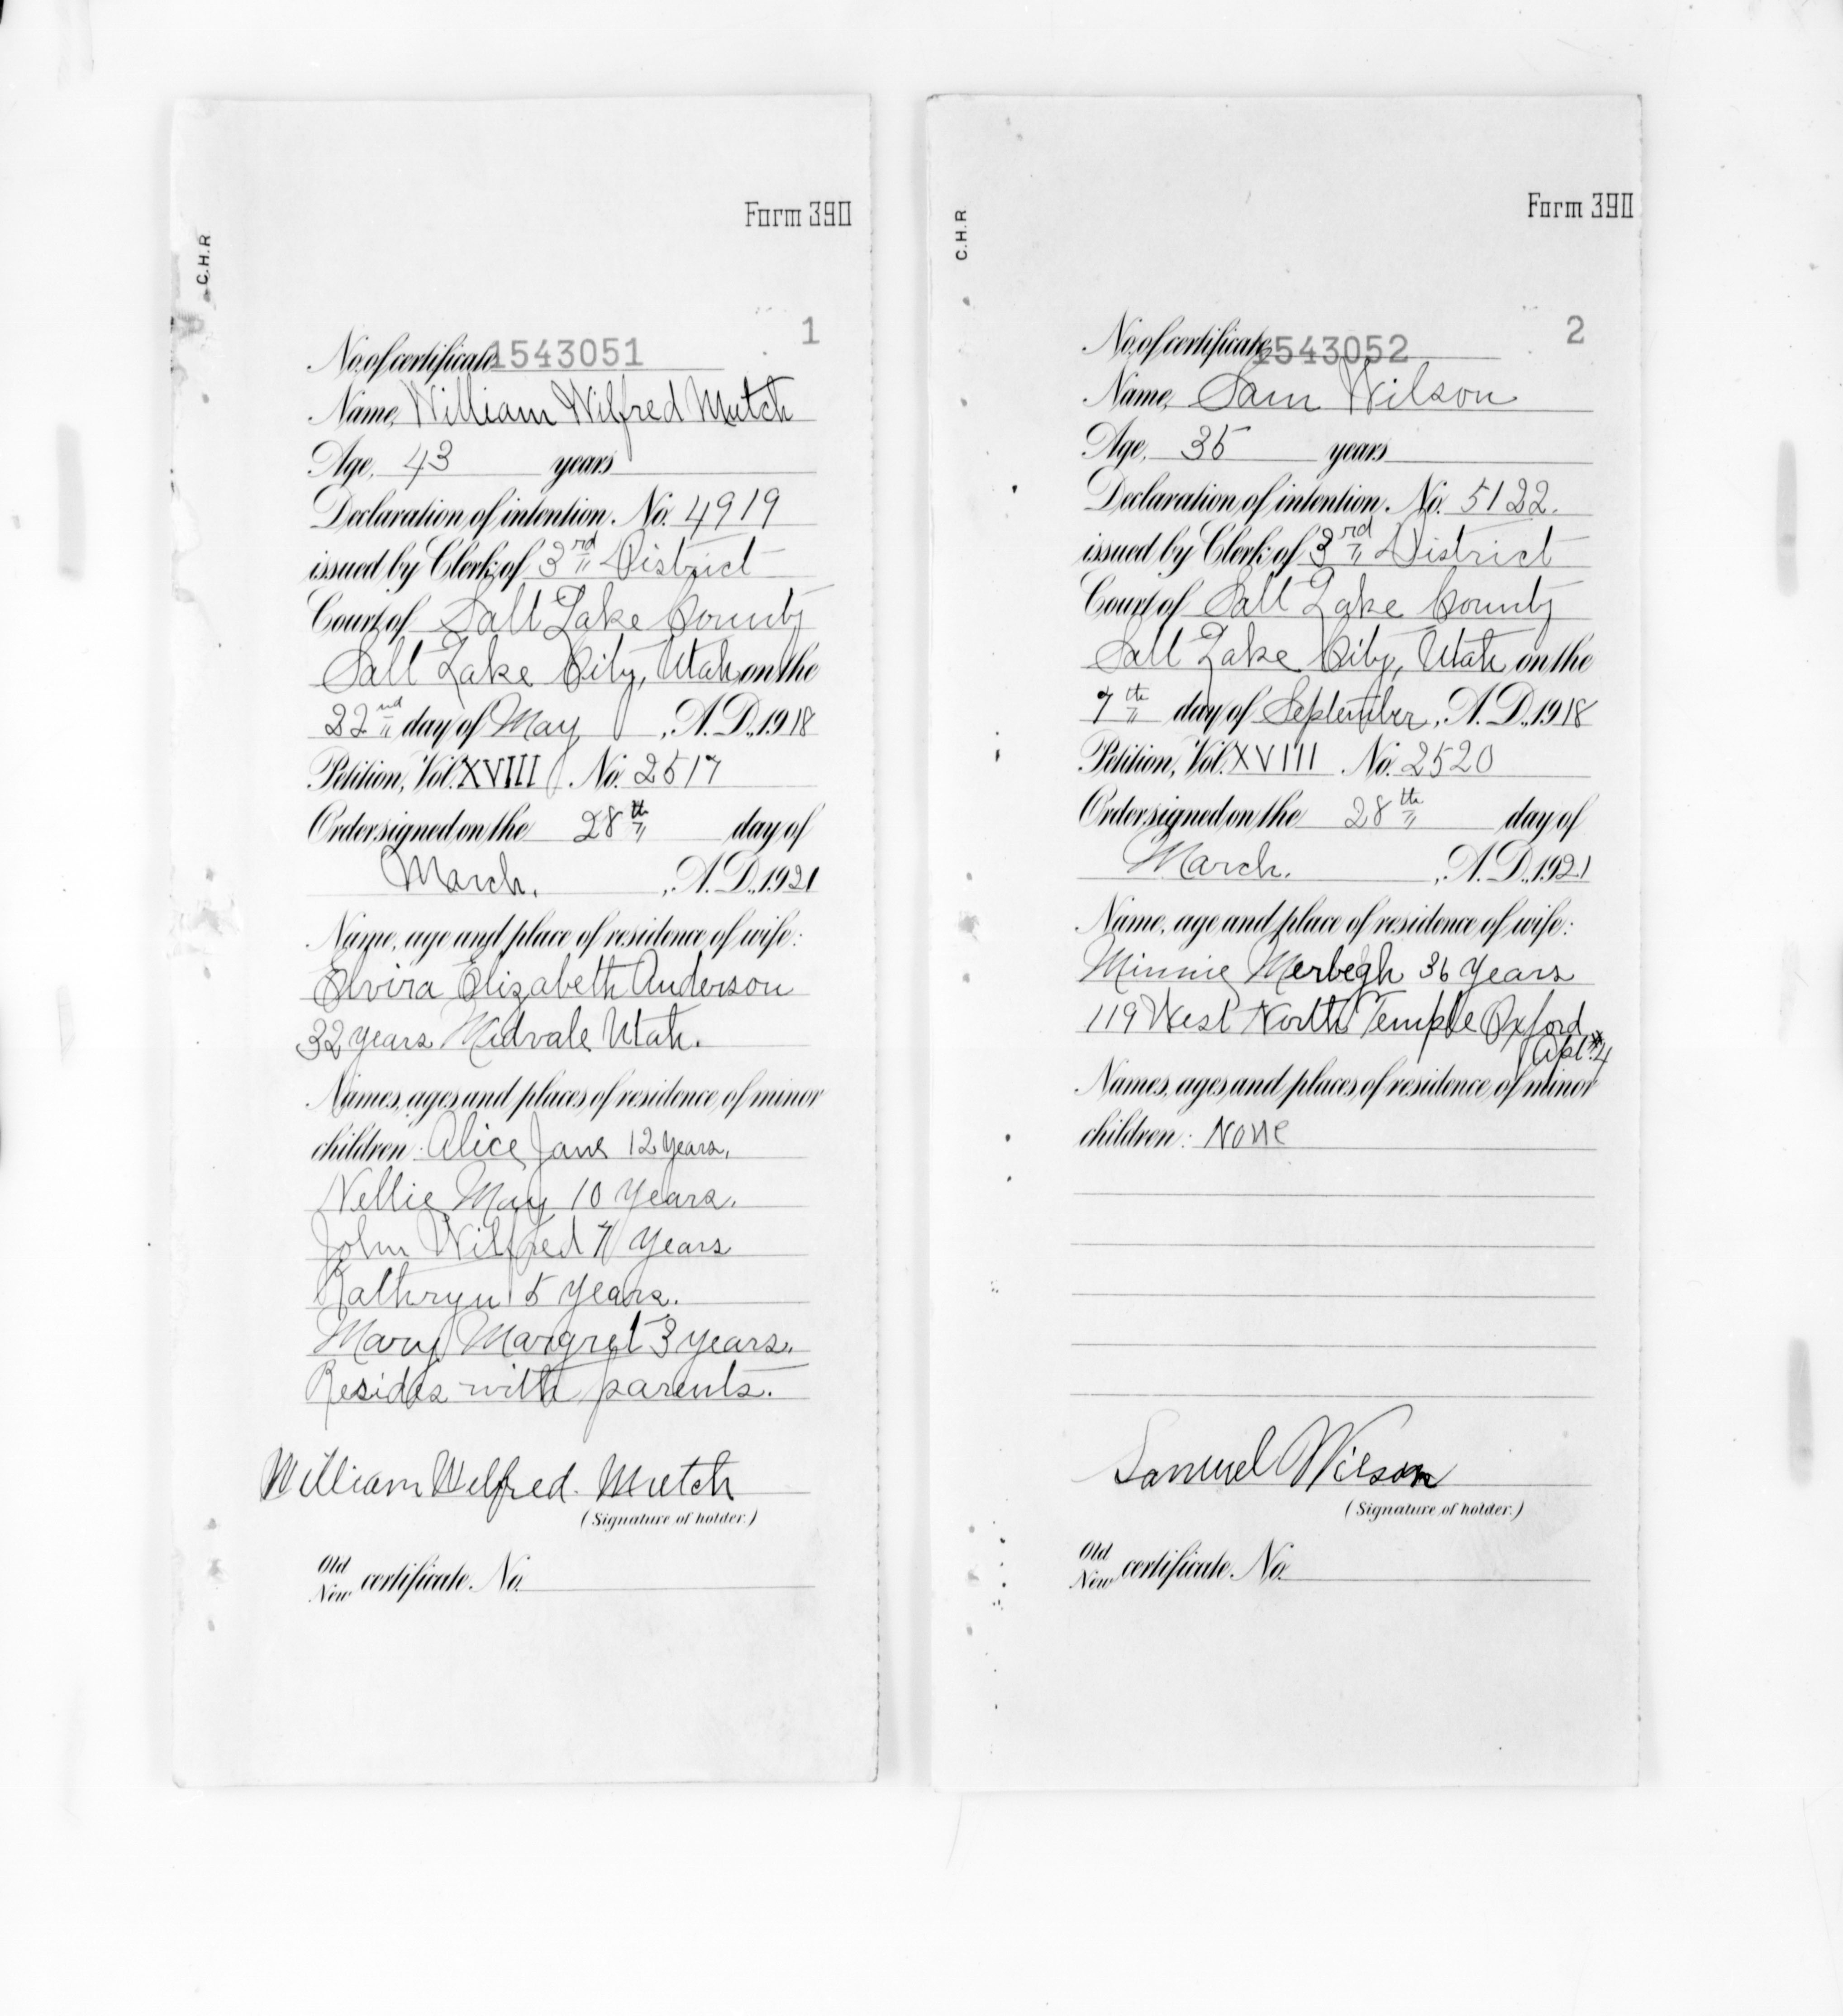 Form 390
C.H.R
1
No. of certificate, 1543051
Name, William Wilfred Mutch
Age, 43 years
Declaration of intention, No. 4919
issued by Clerk of 3rd District
Court of Salt Lake County
Salt Lake City, Utah on the
22nd day of May, A.D., 1918
Petition, Vol. XVIII No. 2517
Order signed on the 28th day of
March, A.D., 1921
Name, age and place of residence of wife:
Elvira Elizabeth Anderson
32 years Midvale Utah.
Names, ages and places of residence of minor
children: Alice Jane 12 years,
Nellie May 10 years,
John Wilfred 7 years
Kathryn 5 years.
Mary Margret 3 years,
Resides with parents.
William Wilfred. Mutch
(Signature of holder.)
Old
New certificate, No.
Form 390
C.H.R
2
No. of certificate, 1543052
Name, Sam Wilson
Age, 35 years
Declaration of intention, No. 5122.
issued by Clerk of 3rd District
Court of Salt Lake County
Salt Lake City, Utah on the
7th day of September, A.D., 1918
Petition, Vol. XVIII No. 2520
Order signed on the 28th day of
March. A.D., 1921
Name, age and place of residence of wife:
Minnie Merbegh 36 years
119 West North Temple Oxford
Apt #4
Names, ages and places of residence of minor
children: None
Samuel Wilson
(Signature of holder.)
Old
New certificate, No.